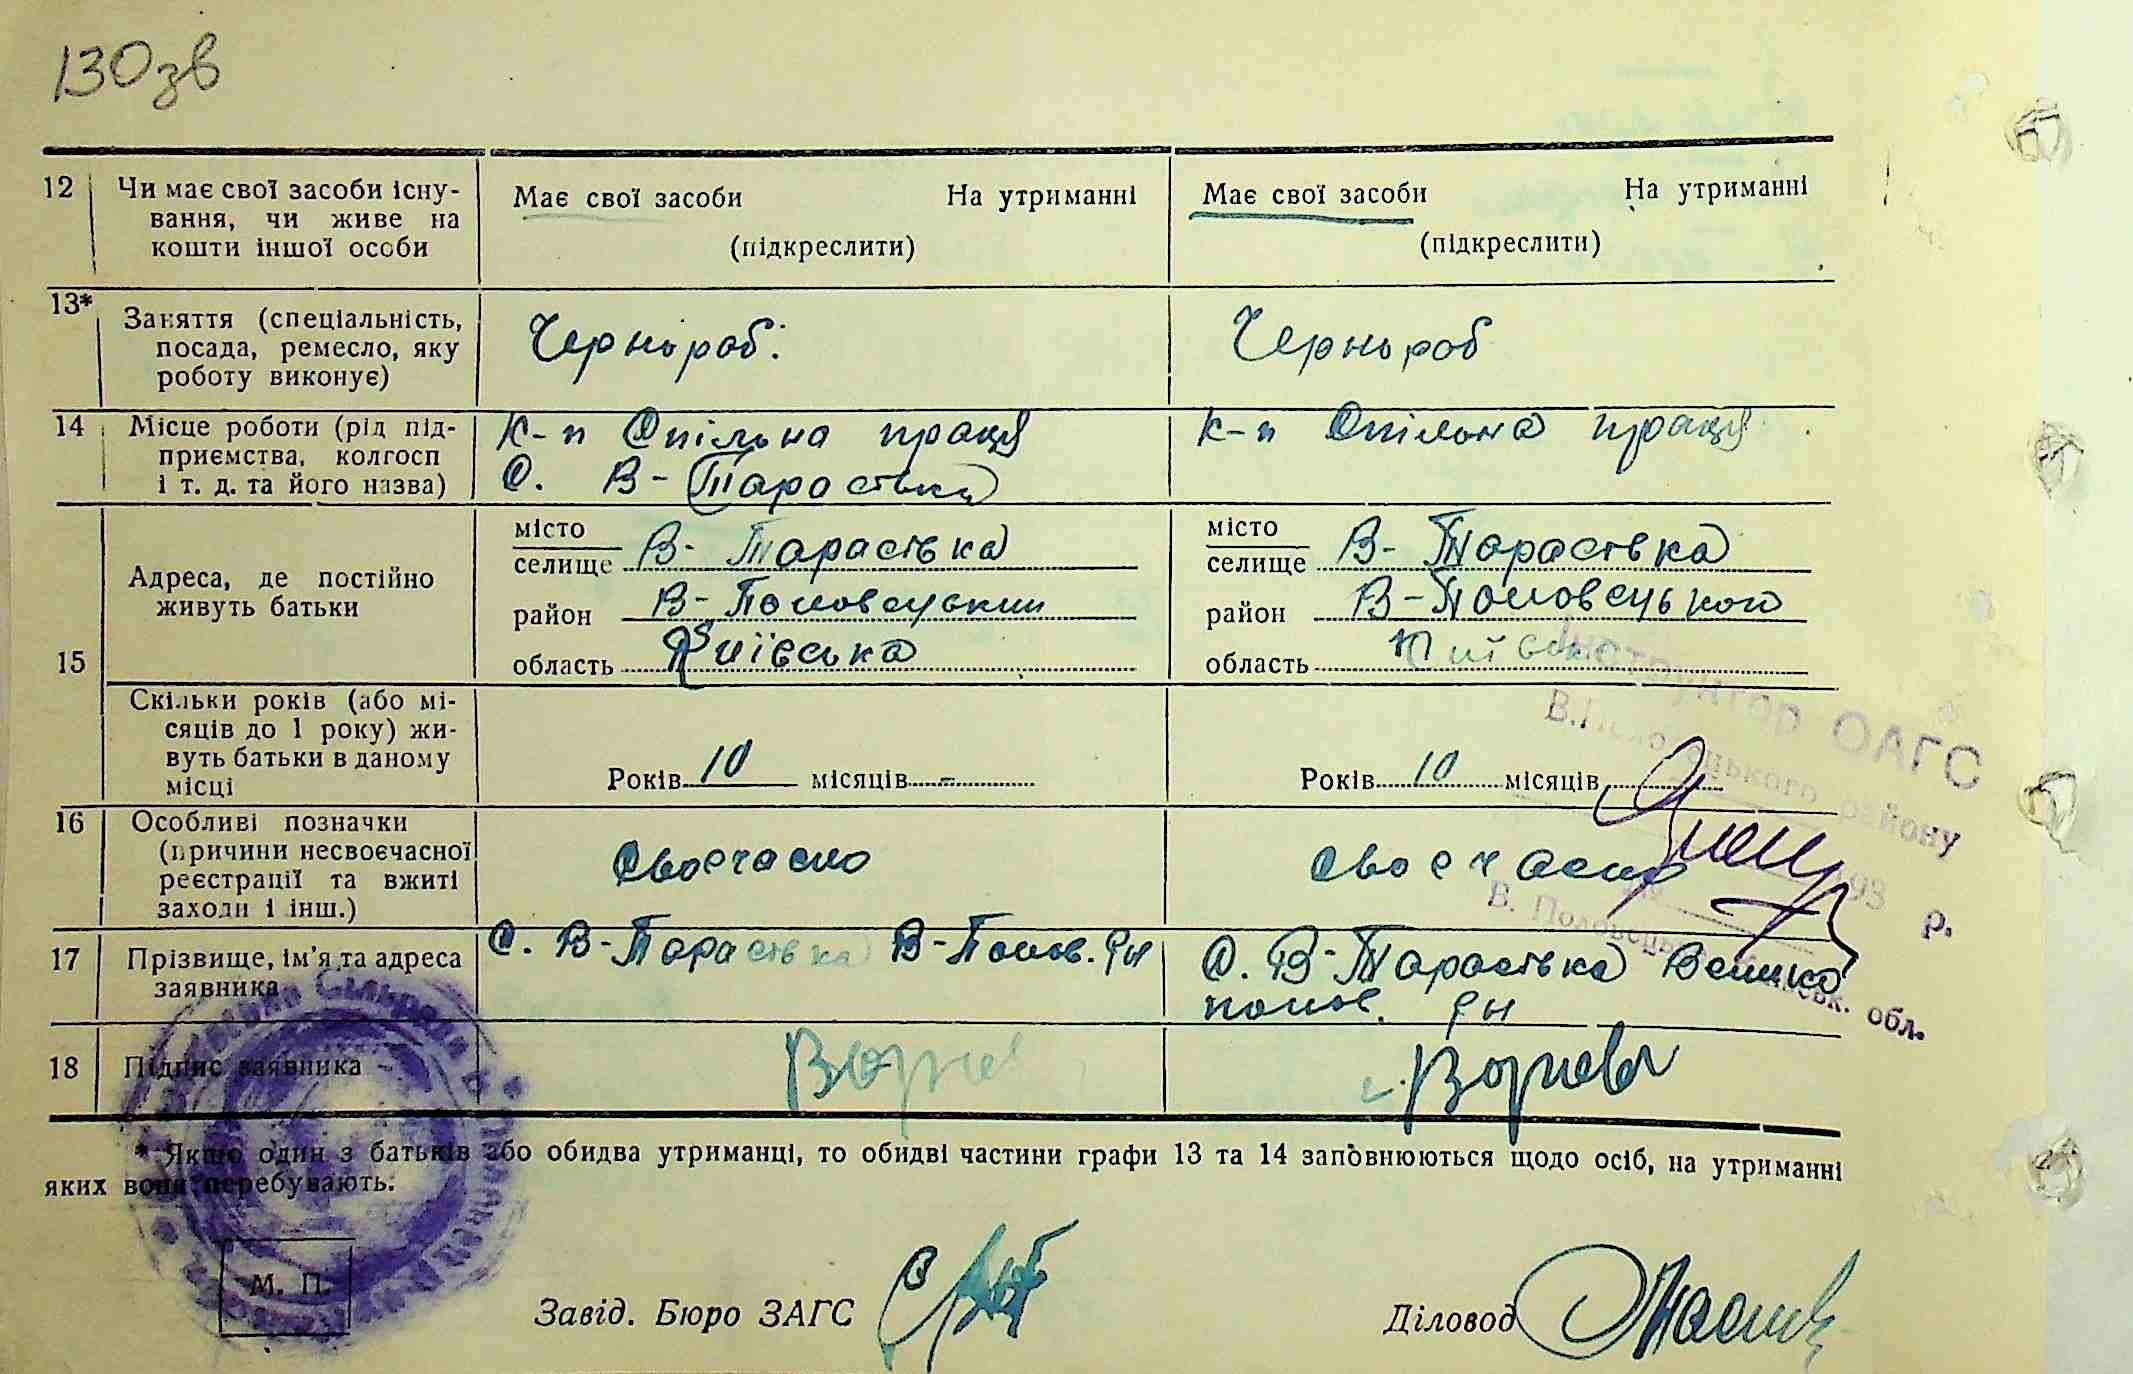 130зв
12 Чи має свої засоби існу-
вання, чи живе на
кошти іншої особи
Має свої засоби На утриманні
(підкреслити)
Має свої засоби На утриманні
(підкреслити)
13* Заняття (спеціальність,
посада, ремесло, яку
роботу виконує)
Чернороб.
Чернороб
14 Місце роботи (рід під-
приємства, колгосп
і т. д. та його назва)
к-п Спільна праця
С. В-Тарасівка
к-п Спільна праця
15 Адреса, де постійно
живуть батьки
місто
селище В-Тарасівка
район В-Половецький
область Київська
місто
селище В-Тарасівка
район В-Половецького
область Київська
Скільки років (або мі-
сяців до 1 року) жи-
вуть батьки в даному
місці
Років 10 місяців -
Років 10 місяців
16 Особливі позначки
(причини несвоєчасної
реєстрації та вжиті
заходи і інш.)
Своєчасно
Своєчасно
Інструктор ОАГС
В.Половецького району
193 р.
В. Половецьк. обл.
17 Прізвище, ім'я та адреса
заявника
С. В-Тарасівка В-Полов. рн
С. В-Тарасівка Велико
полов. рн
18 Підпис заявника
* Якщо один з батьків або обидва утриманці, то обидві частини графи 13 та 14 заповнюються щодо осіб, на утриманні
яких вони перебувають.
М. П.
Завід. Бюро ЗАГС
Діловод